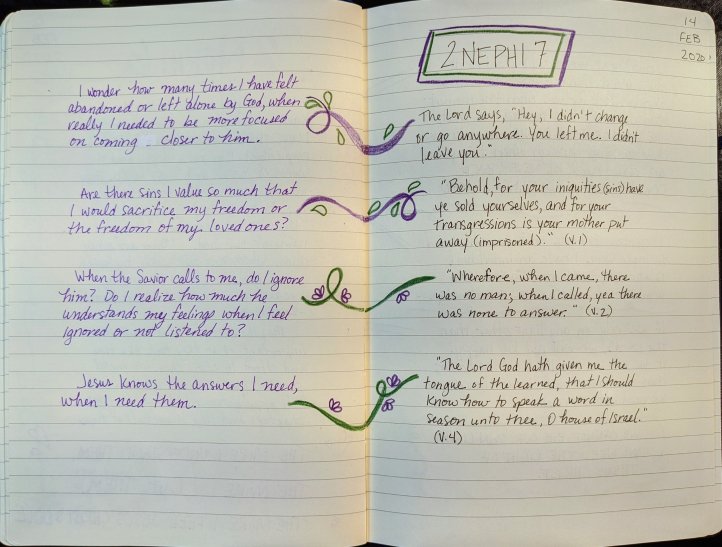 I wonder how many times I have felt
abandoned or left alone by God, when
really I needed to be more focused
on coming closer to him.
Are there sins I value so much that
I would sacrifice my freedom or
the freedom of my loved ones?
When the Savior calls to me, do I ignore
him? Do I realize how much he
understands my feelings when I feel
ignored or not listened to?
Jesus knows the answers I need,
when I need them.
14
FEB
2020
2 NEPHI 7
The Lord says, "Hey, I didn't change
or go anywhere. You left me. I didn't
leave you."
"Behold, for your iniquities (sins) have
ye sold yourselves, and for your
transgressions is your mother put
away (imprisoned)." (v.1)
"Wherefore, when I came, there
was no man; when I called, yea there
was none to answer." (v.2)
"The Lord God hath given me the
tongue of the learned, that I should
know how to speak a word in
season unto thee, O house of Israel."
(v.4)